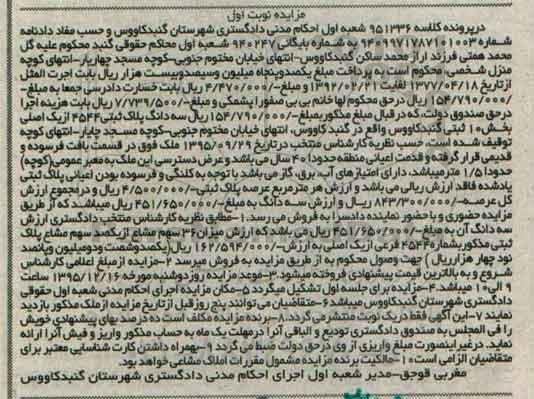 مزایده نوبت اول
درپرونده کلاسه ۹۵۱۳۳۶ شعبه اول احکام مدنی دادگستری شهرستان گنبدکاووس و حسب مفاد دادنامه
شماره ۹۴۰۹۹۷۱۷۸۷۱۰۱۰۰۳ به شماره بایگانی ۹۴۰۲۴۷ شعبه اول محاکم حقوقی گنبد محکوم علیه گل
محمد همتی فرزند اراز محمد ساکن گنبدکاووس-انتهای خیابان مختوم جنوبی-کوچه مسجد چهاریار-انتهای کوچه
منزل شخصی، محکوم است به پرداخت مبلغ یکصدوپنجاه میلیون وسیصدوبیست هزار ریال بابت اجرت المثل
از تاریخ ۱۳۷۷/۰۴/۱۸ لغایت ۱۳۹۲/۰۲/۲۱ و مبلغ ۴/۴۷۰/۰۰۰ ریال بابت خسارت دادرسی جمعا به مبلغ
۱۵۴/۷۹۰/۰۰۰ ریال درحق محکوم لها خانم بی بی صفورا پشمکی و مبلغ ۷/۷۳۹/۵۰۰ ریال بابت هزینه اجرا
درحق صندوق دولت، که در قبال مبلغ مذکور بمبلغ ۱۵۴/۷۹۰/۰۰۰ ریال سه دانگ پلاک ثبتی ۴۵۴۴ ازیک اصلی
بخش ۱۰ ثبتی گنبدکاووس واقع در گنبد کاووس، انتهای خیابان مختوم جنوبی-کوچه مسجد چهاریار-انتهای کوچه
توقیف شده است، حسب نظریه کارشناس منتخب درتاریخ ۱۳۹۵/۰۹/۲۹ ملک فوق در قسمت بافت فرسوده و
قدیمی قرار گرفته و قدمت اعیانی منطقه حدودا ۴۰ سال می باشد و عرض دسترسی این ملک به معبر عمومی (کوچه)
حدودا ۱/۵ مترمیباشد، دارای امتیازهای آب، برق، گاز می باشد با توجه به کلنگی و فرسوده بودن اعیانی پلاک ثبتی
یادشده فاقد ارزش ریالی می باشد و ارزش هر مترمربع عرصه پلاک ثبتی ۴/۵۰۰/۰۰۰ ریال و درمجموع ارزش
کل عرصه ۸۴۳/۳۰۰/۰۰۰ ریال و ارزش سه دانگ به مبلغ ۴۵۱/۶۵۰/۰۰۰ ریال میباشد که از طریق
مزایده حضوری و با حضور نماینده دادسرا به فروش می رسد. ۱-مطابق نظریه کارشناس منتخب دادگستری ارزش
سه دانگ آن به مبلغ ۴۵۱/۶۵۰/۰۰۰ ریال می باشد که ارزش میزان ۳۶ سهم مشاع ازیکصد سهم مشاع پلاک
ثبتی مذکور بشماره ۴۵۴۴ فرعی از یک اصلی به ارزش ۱۶۲/۵۹۴/۰۰۰ ریال (یکصدوشصت ودومیلیون وپانصد
نود چهار هزارریال) جهت وصول محکوم به از طریق مزایده به فروش میرسد ۲-مزایده از مبلغ اعلامی کارشناس
شروع و به بالاترین قیمت پیشنهادی فروخته میشود. ۳-موعد مزایده روز دوشنبه مورخه ۱۳۹۵/۱۲/۱۶ ساعت
۹ الی ۱۰ میباشد. ۴-مزایده برای جلسه اول تشکیل میگردد ۵-مکان مزایده اجرای احکام مدنی شعبه اول حقوقی
دادگستری شهرستان گنبدکاووس میباشد ۶-متقاضیان می توانند پنج روز قبل از تاریخ مزایده از ملک مذکور بازدید
نمایند ۷-این آگهی فقط در یک نوبت منتشر می گردد. ۸-برنده مزایده مکلف است ده درصد بهای پیشنهادی خویش
را فی المجلس به صندوق دادگستری تودیع و الباقی آنرا درمهلت یک ماه به حساب مذکور واریز و فیش آنرا ارائه
نماید. درغیر اینصورت مبلغ واریزی از وی درحق دولت ضبط می گردد ۹-بهمراه داشتن کارت شناسایی معتبر برای
متقاضیان الزامی است ۱۰-مالکیت برنده مزایده مشمول مقررات املاک مشاعی خواهد بود.
مغربی قوجق-مدیر شعبه اول اجرای احکام مدنی دادگستری شهرستان گنبدکاووس